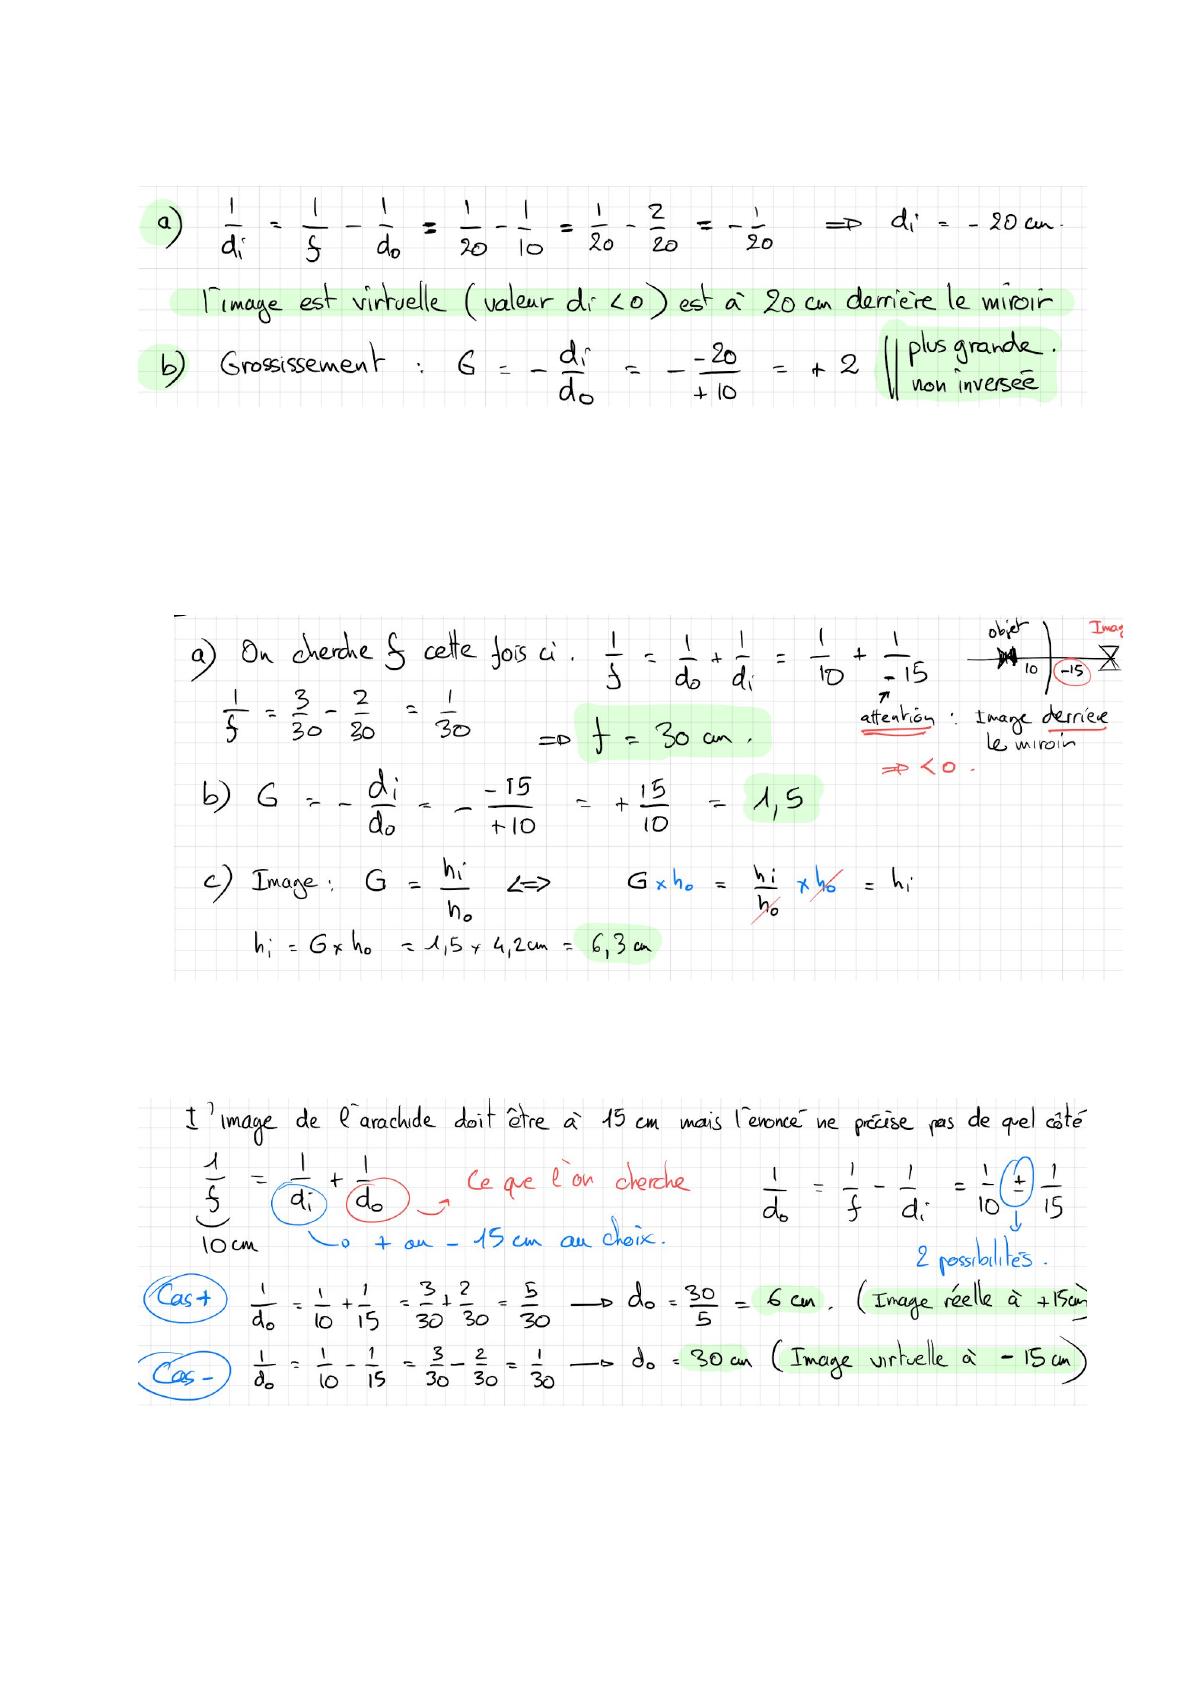 a) 1/di = 1/f - 1/do = 1/20 - 1/10 = 1/20 - 2/20 = - 1/20 ⇒ di = - 20 cm.
l'image est virtuelle (valeur di <0) est à 20 cm derrière le miroir
b) Grossissement : G = - di/do = - -20/+10 = + 2 || plus grande.
non inversée
a) On cherche f cette fois ci. 1/f = 1/do + 1/di = 1/10 + 1/-15
objet Imag
10 -15
1/f = 3/30 - 2/30 = 1/30 ⇒ f = 30 cm.
attention : Image derrière
le miroir
⇒ <0.
b) G = - di/do = - -15/+10 = + 15/10 = 1,5
c) Image : G = hi/ho <=> G × ho = hi/ho × ho = hi
hi = G × ho = 1,5 × 4,2 cm = 6,3 cm
L'image de l'arachide doit être à 15 cm mais l'énoncé ne précise pas de quel côté
1/f = 1/di + 1/do Ce que l'on cherche 1/do = 1/f - 1/di = 1/10 ± 1/15
10 cm + ou - 15 cm au choix.
2 possibilités.
Cas + 1/do = 1/10 + 1/15 = 3/30 + 2/30 = 5/30 → do = 30/5 = 6 cm. (Image réelle à +15cm)
Cas - 1/do = 1/10 - 1/15 = 3/30 - 2/30 = 1/30 → do = 30 cm (Image virtuelle à - 15 cm)